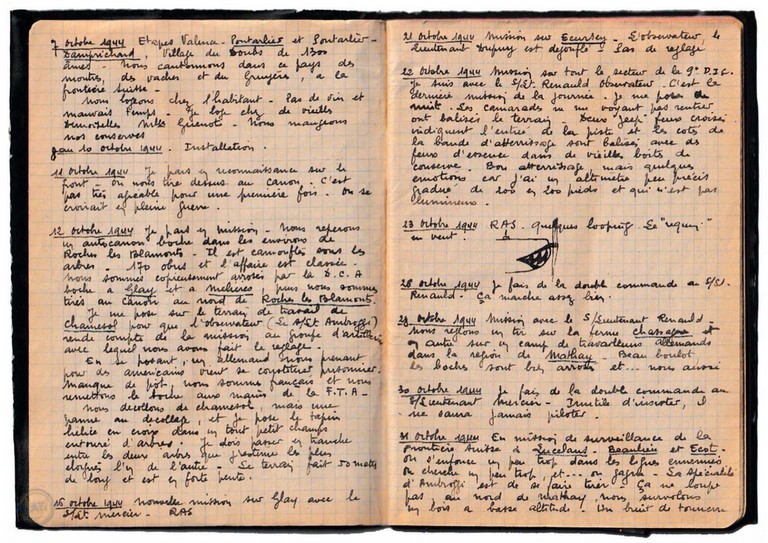 7 octobre 1944 Etapes Valence - Pontarlier et Pontarlier -
Damprichard, Village du Doubs de 1300
âmes - Nous cantonnons dans ce pays des
montres, des vaches et du Gruyère, a la
frontière suisse -
Nous logeons chez l'habitant - Pas de vin et
mauvais temps - Je loge chez de vieilles
Demoiselles Melles Nous mangeons
nos conserves
10 octobre 1944. Installation.
11 octobre 1944 Je pars en reconnaissance sur le
front - on nous tire dessus au canon. C'est
pas très agréable pour une première fois - On se
croirait en pleine guerre.
12 octobre 1944 Je pars en mission - Nous reperons
un autocanon boche dans les environs de
Roches les Blamonts - Il est camouflé sous les
arbres - 170 obus et l'affaire est classée -
nous sommes copieusement arrosés par la D.C.A
boche a Glay et a Meslières, puis nous sommes
tirés au canon au nord de Roches les Blamonts.
Je me pose sur le terrain de travail de
Chamesol pour que l'observateur (Le S/Lt Ambroggi)
rende compte de la mission au groupe d'artillerie
avec lequel nous avons fait le reglage -
En se posant, un allemand nous prenant
pour des americains vient se constituer prisonnier.
Manque de pot, nous sommes français et nous
remettons le boche aux mains de la F.T.A -
Nous decollons de chamesol, mais une
panne au decollage, et je pose le tapin
helice en croix dans un tout petit champs
entouré d'arbres. Je dois passer en tranche
entre les deux arbres que j'estime les plus
eloignés l'un de l'autre - Le terrain fait 50 metres
de long et est en forte pente.
15 octobre 1944 nouvelle mission sur Glay avec le
S/Lt. mercier - RAS
21 octobre 1944 Mission sur Ecurcey - L'observateur, le
Lieutenant Dupuy est degonflé - Pas de reglage
22 octobre 1944 Mission sur tout le secteur de la 9e D.I.C.
Je suis avec le S/Lt. Renauld Observateur - C'est la
dernière mission de la journée. Je me pose de
nuit. Les camarades ne me voyant pas rentrer
ont balisés le terrain - Deux jeep feux croisés
indiquent l'entrée de la piste et les cotés de
la bande d'atterrissage sont balisés avec des
feux d'essence dans de vieilles boites de
conserve. Bon atterrissage, mais quelques
emotions car j'ai un altimetre peu précis
gradué de 200 en 200 pieds et qui n'est pas
lumineux.
23 octobre 1944 RAS - quelques looping - Le "requin"
en veut!
28 octobre 1944 Je fais de la double commande au S/Lt.
Renauld - Ça marche assez bien.
29 octobre 1944 Mission avec le S/Lieutenant Renauld -
Nous reglons un tir sur la ferme chassagne et
un autre sur un camp de travailleurs allemands
dans la region de Mathay - Beau boulot
les boches sont bien arrosés et ... nous aussi
30 octobre 1944 Je fais de la double commande au
S/Lieutenant mercier - Inutile d'insister, il
ne saura jamais piloter.
31 octobre 1944 En mission de surveillance de la
frontière suisse à Lucelans - Beaulieu et Ecot -
on s'enfonce un peu trop dans les lignes ennemies
on cherche un peu trop, et ... on gagne - La spécialité
d'Ambroggi est de se faire tirer - Ça ne loupe
pas, au nord de mathay, nous survolons
un bois a basse altitude - Un bruit de tonnerre